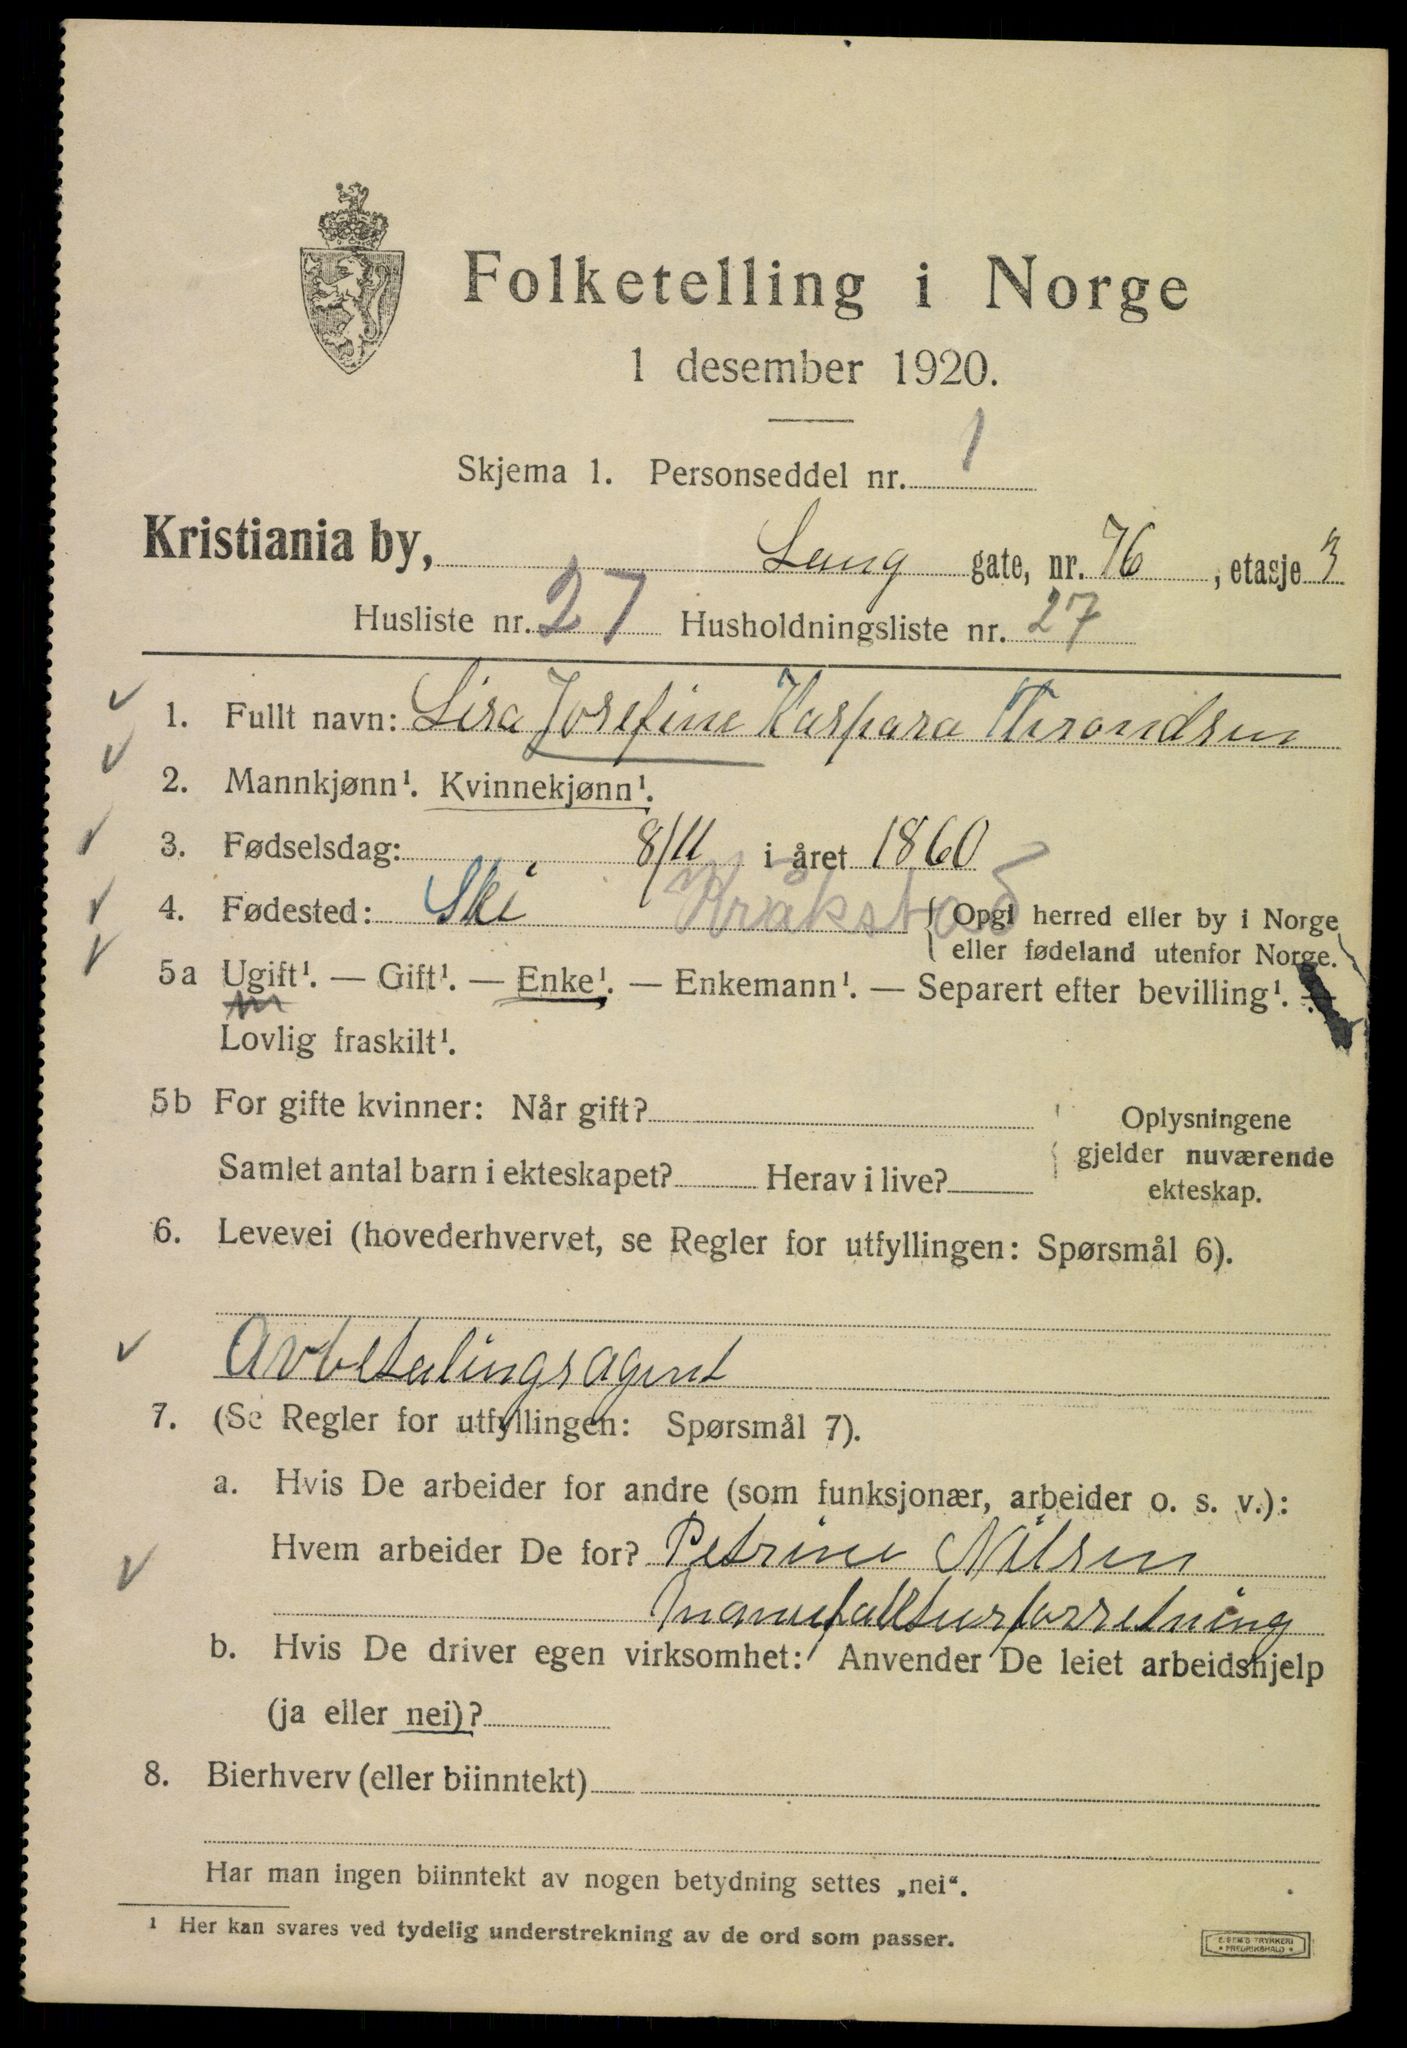 Folketelling i Norge
1 desember 1920.
Skjema 1. Personseddel nr. 1
Kristiania by, Lang gate, nr. 76, etasje 3
Husliste nr. 27 Husholdningsliste nr. 27
1. Fullt navn: Lisa Josefine Kaspara Throndsen
2. Mannkjønn¹. Kvinnekjønn¹.
3. Fødselsdag: 8/11 i året 1860
4. Fødested: Ski Kråkstad { Opgi herred eller by i Norge
eller fødeland utenfor Norge.
5a Ugift¹. — Gift¹. — Enke¹. — Enkemann¹. — Separert efter bevilling¹. —
Lovlig fraskilt¹.
5b For gifte kvinner: Når gift?
Samlet antal barn i ekteskapet? Herav i live?
Oplysningene
gjelder nuværende
ekteskap.
6. Levevei (hovederhvervet, se Regler for utfyllingen: Spørsmål 6).
Avbetalingsagent
7. (Se Regler for utfyllingen: Spørsmål 7).
a. Hvis De arbeider for andre (som funksjonær, arbeider o. s. v.):
Hvem arbeider De for? Petrine Nilsen
Manufakturforretning
b. Hvis De driver egen virksomhet: Anvender De leiet arbeidshjelp
(ja eller nei)?
8. Bierhverv (eller biinntekt)
Har man ingen biinntekt av nogen betydning settes „nei“.
¹ Her kan svares ved tydelig understrekning av de ord som passer.
E. SEM'S TRYKKERI
• FREDRIKSHALD •